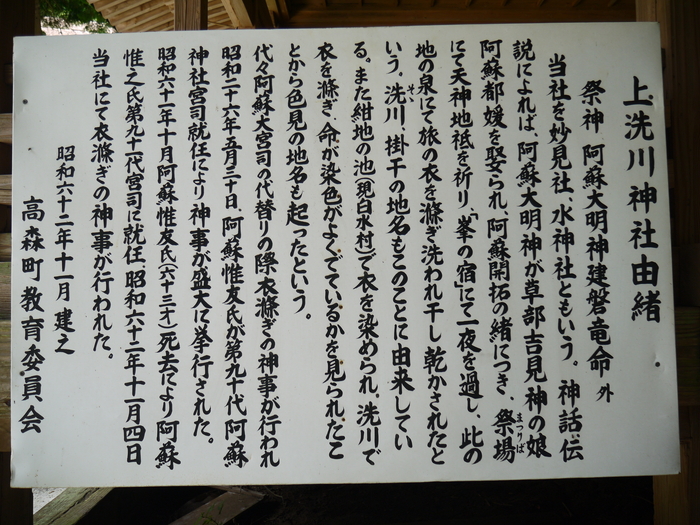 上洗川神社由緒
祭神 阿蘇大明神建磐竜命 外
当社を妙見社、水神社ともいう。神話、伝
説によれば、阿蘇大明神が草部吉見神の娘
阿蘇都媛を娶られ、阿蘇開拓の緒につき、祭場まつりば
にて天神地祗を祈り、「峯の宿」にて一夜を過し、此の
地の泉にて旅の衣を滌ぎ洗われ干し乾かされたと
いう。洗川そい、掛干の地名もこのことに由来してい
る。また紺地の池(現白水村)で衣を染められ、洗川で
衣を滌ぎ、命が染色がよくでているかを見られたこ
とから色見の地名も起ったという。
代々阿蘇大宮司の代替りの際衣滌ぎの神事が行われ
昭和二十六年五月三十日、阿蘇惟友氏が第九十代阿蘇
神社宮司就任により神事が盛大に挙行された。
昭和六十一年十月阿蘇惟友氏(六十三才)死去により阿蘇
惟之氏第九十一代宮司に就任、昭和六十二年十一月四日
当社にて衣滌ぎの神事が行われた。
昭和六十二年十一月 建之
高森町教育委員会